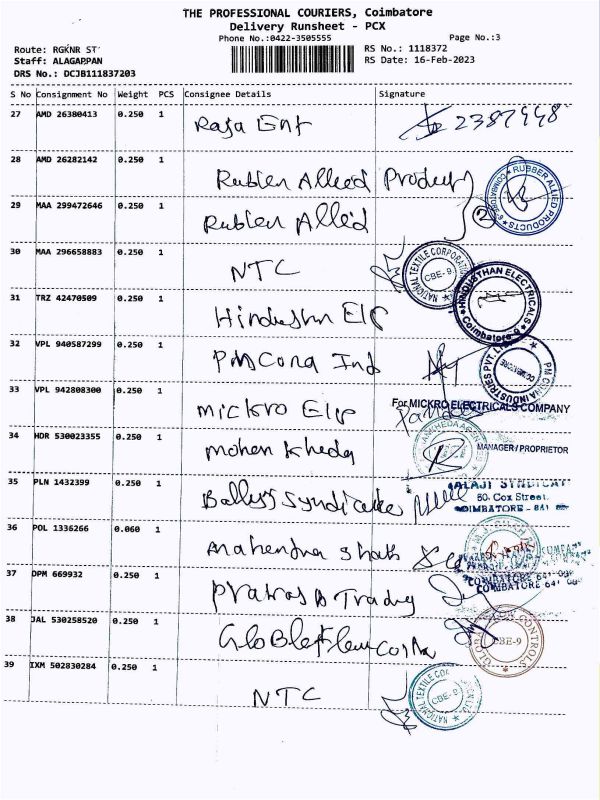 THE PROFESSIONAL COURIERS, Coimbatore
Delivery Runsheet - PCX
Phone No.:0422-3505555 Page No.:3
Route: RGKNR ST RS No.: 1118372
Staff: ALAGAPPAN RS Date: 16-Feb-2023
DRS No.: DCJB111837203
S No Consignment No Weight PCS Consignee Details Signature
27 AMD 26380413 0.250 1 Raja Ent
28 AMD 26282142 0.250 1 Rubber Allied Product
RUBBER ALLIED PRODUCTS COIMBATORE
29 MAA 299472646 0.250 1 Rubber Allied 2
30 MAA 296658883 0.250 1 NTC
NATIONAL TEXTILE CORPORATION CBE-9
31 TRZ 42470509 0.250 1 Hindusthan Elc
HINDUSTHAN ELECTRICALS Coimbatore-9
32 VPL 940587299 0.250 1 Ind
INDUSTRIES PVT. COIMBATORE
33 VPL 942808300 0.250 1 Mickro
For MICKRO ELECTRICALS COMPANY
MANAGER/PROPRIETOR
34 HDR 530023355 0.250 1 Mohan Kheda
35 PLN 1432399 0.250 1 Syndicate
SYNDICAT
60. Cox Street.
OIMBATORE - 641
36 POL 1336266 0.060 1 Mahendra Shah
37 DPM 669932 0.250 1
COIMBATORE 641
38 JAL 530258520 0.250 1
CONTROLS CBE-9
39 IXM 502830284 0.250 1 NTC
NATIONAL TEXTILE CBE-9